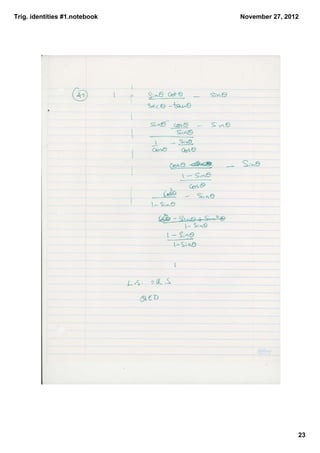 Trig. identities #1.notebook November 27, 2012
1 = sinθ cotθ - sinθ
secθ - tanθ
sinθ cosθ - sinθ
sinθ
1 - sinθ
cosθ cosθ
cosθ - sinθ
1 - sinθ
cosθ
cos²θ - sinθ
1 - sinθ
cos²θ - sinθ + sin²θ
1 - sinθ
1 - sinθ
1 - sinθ
1
L.S. = R.S
QED
23